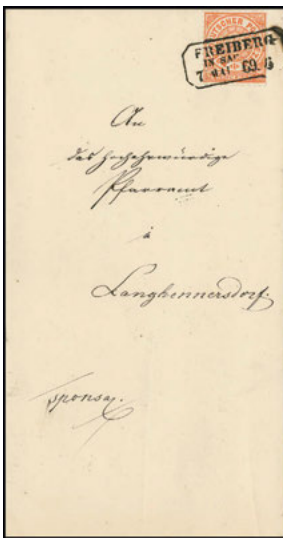 FREIBERG
IN SAC
7 MAI 69 6
An
das hochehrwürdige
Pfarramt
à
Langhennersdorf.
sponsa.